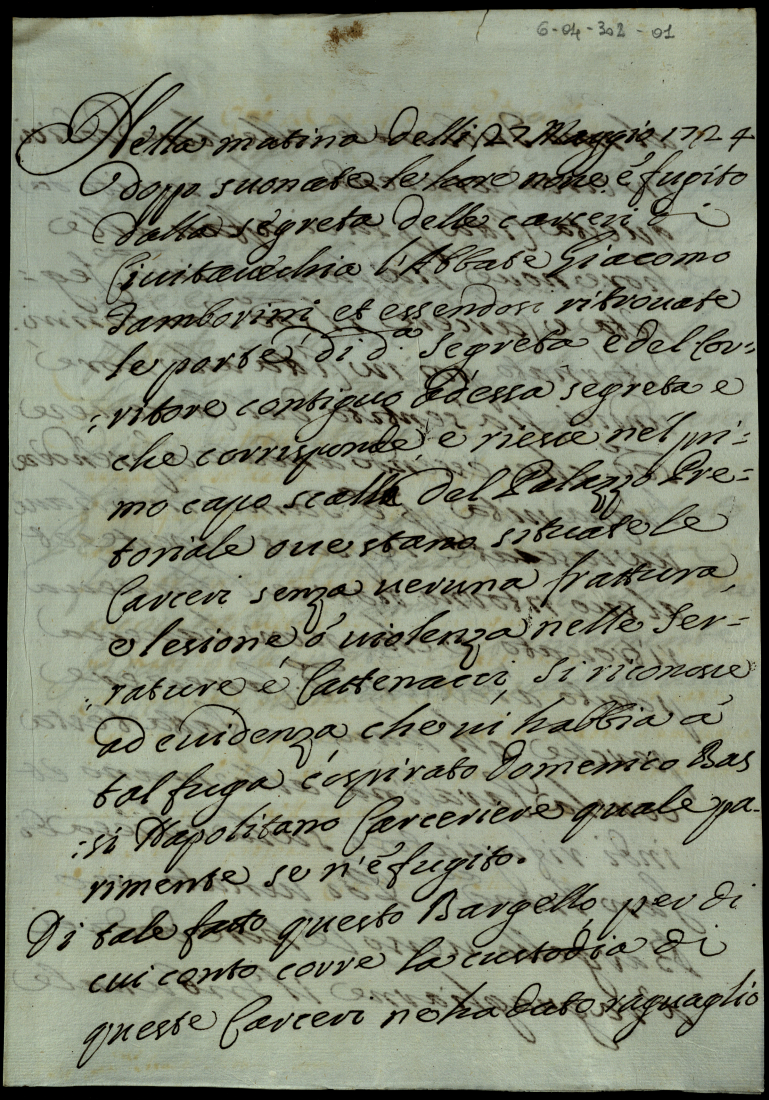 6-04-302-01
Nella matina delli 27 Maggio 1724
dopp suonate le hore nove é fugito
dalla segreta delle carceri di
Civitavechia l'Abbate Giacomo
Tamborini et essendosi ritrovate
le porte di d.ª segreta e del Cor-
:ritore contiguo ad essa segreta e
che corrisponde, e riesce nel pri-
mo capo scalla del Palazzo Pre-
toriale ove stano situate le
Carceri senza veruna frattura,
o lesione ó violenza nelle Ser-
:rature é Cattenacci, si riconosce
ad evidenza che vi habbia á
tal fuga cospirato Domenico Bas
:si Napolitano Carceriere quale pa-
rimente se n'é fugito.
Di tale fatto questo Bargello, per di
cui conto corre la custodia di
queste Carceri ne ha dato raguaglio